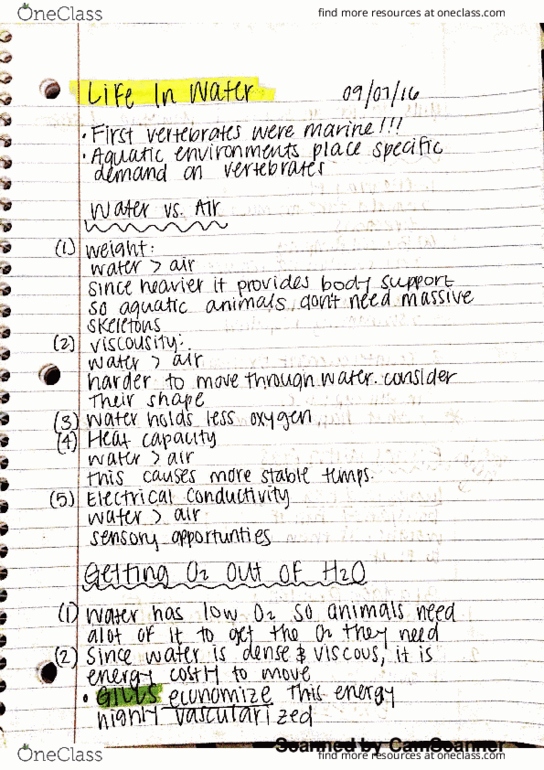 OneClass
find more resources at oneclass.com
Life In Water 09/07/16
• First vertebrates were marine!!!
• Aquatic environments place specific
demand on vertebrates
Water vs. Air
(1) weight:
water > air
since heavier it provides body support
so aquatic animals don't need massive
skeletons
(2) viscousity:
water > air
harder to move through water. consider
their shape
(3) Water holds less oxygen
(4) Heat capacity
water > air
this causes more stable temps.
(5) Electrical conductivity
water > air
sensory opportunties
Getting O2 out of H2O
(1) Water has low O2 so animals need
alot of it to get the O2 they need
(2) Since water is dense & viscous, it is
energy costly to move
• GILLS economize this energy
highly vascularized
Scanned by CamScanner
OneClass
find more resources at oneclass.com